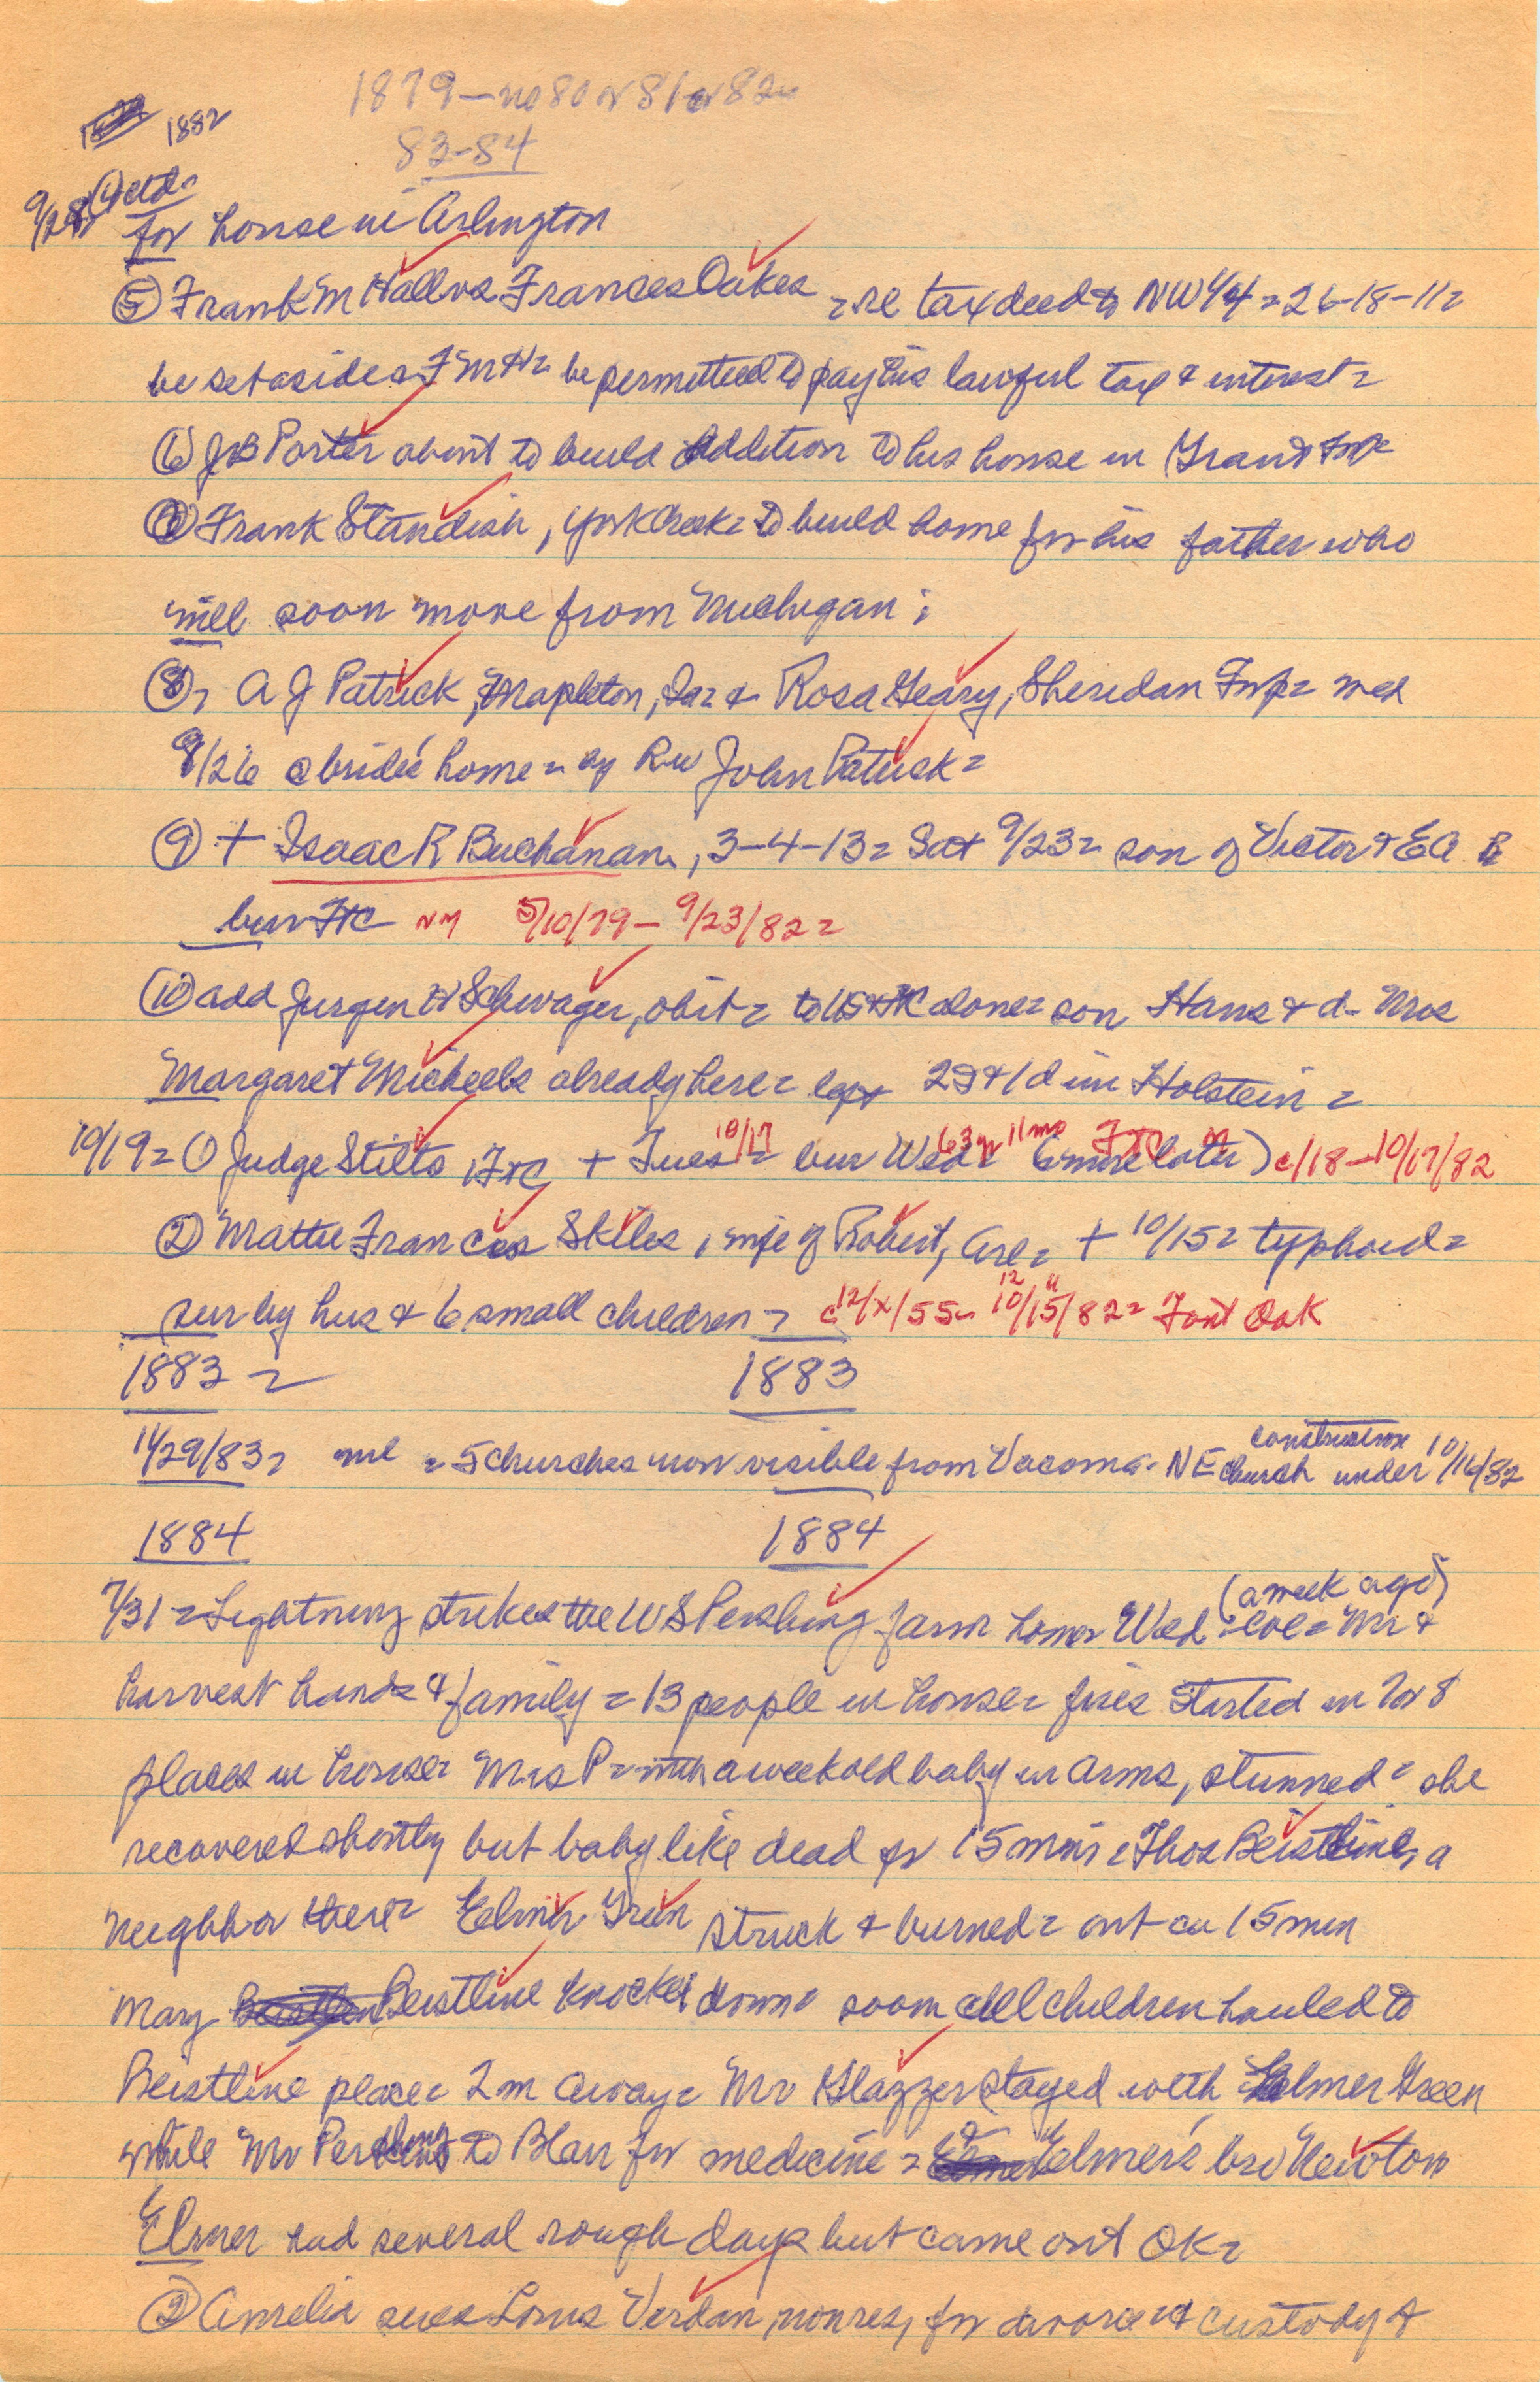 1879 – no 80 or 81 or 82
83-84
1882
9/28 (4 ctd
for house in Arlington
(5) Frank M Hall vs Frances Oakes = re tax deed to NW 1/4 = 26-18-11 =
be set aside & FMH = be permitted to pay his lawful tax & interest =
(6) JB Porter about to build addition to his house in Grant twp
(7) Frank Standish, York Creek = to build home for his father who
will soon move from Michigan ;
(8) A J Patrick, Mapleton, Ia = & Rosa Geary, Sheridan Twp = med
9/26 @ bride's home = by Rev John Patrick =
(9) + Isaac R Buchanan, 3-4-13 = Sat 9/23 = son of Victor & EA B
bur FtC NM 5/10/79 – 9/23/82 =
(10) add Jurgen H Schwager, obit = to US & FtC alone = son Hans & d- Mrs
Margaret Micheels already here = left 2S & 1 d in Holstein =
10/19 = (1) Judge Stilts, FtC + Tues = 10/17 bur Wed = (more later) 63 y 11 mo FtC c/18 – 10/17/82
(2) Mattie Frances Skiles, wife of Robert, Arl = + 10/15 = typhoid =
sur by hus & 6 small children = c 12/x/55 – 10/15/82 = Font Oak
1883 = 1883
11/29/83 = = 5 churches now visible from Vacoma - NE church under construction 10/16/82
1884 1884
7/31 = Lightning strikes the WS Pershing farm home Wed (a week ago) = loc = Mr &
harvest hands & family = 13 people in house = fires started in 7 or 8
places in house = Mrs P = with a week old baby in arms, stunned = she
recovered shortly but baby like dead for 15 mins = Thos Beistline, a
neighbor there = Elmer Green struck & burned = out ca 15 min
Mary Beistline knocked down = soon all children hauled to
Beistline place = 2 m away = Mr Glazzer stayed with Elmer Green
while Mr Pershing to Blair for medicine = Elmer's bro Newton
Elmer had several rough days but came out OK =
(2) Amelia sues Louis Verdan, nonres, for divorce & custody of